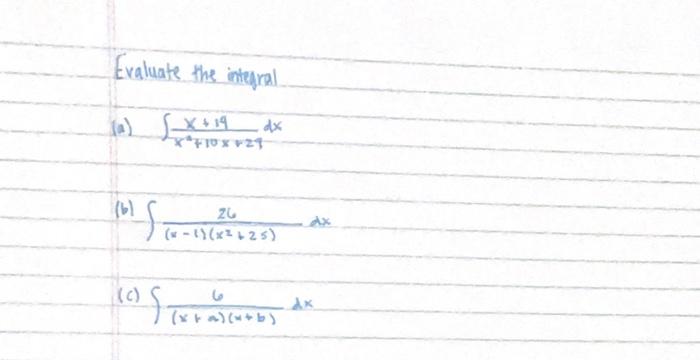 Evaluate the integral
(a) ∫ x + 19 / x² + 10x + 29 dx
(b) ∫ 26 / (x - 1)(x² + 25) dx
(c) ∫ 6 / (x + a)(x + b) dx